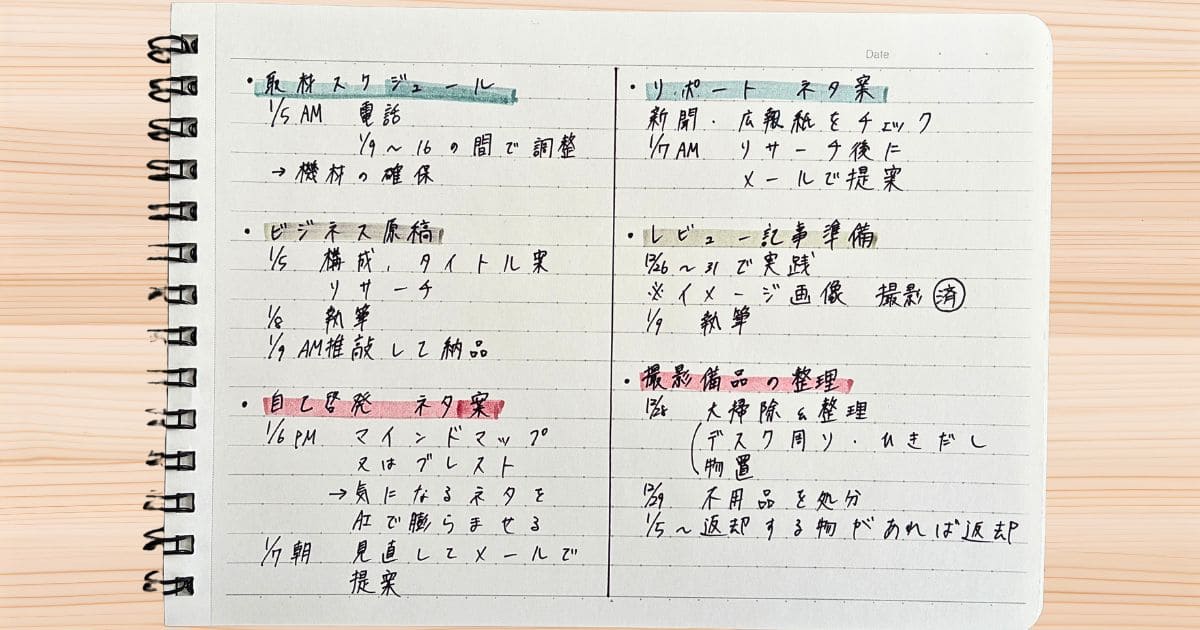 Date
・取材スケジュール
1/5 AM 電話
1/9〜16の間で調整
→機材の確保
・ビジネス原稿
1/5 構成、タイトル案
リサーチ
1/8 執筆
1/9 AM推敲して納品
・自己啓発 ネタ案
1/6 PM マインドマップ
又はブレスト
→気になるネタを
AIで膨らませる
1/7朝 見直してメールで
提案
・リポート ネタ案
新聞・広報紙をチェック
1/7 AM リサーチ後に
メールで提案
・レビュー記事準備
12/26〜31で実践
※イメージ画像 撮影済
1/9 執筆
・撮影備品の整理
12/28 大掃除&整理
(デスク周り・ひきだし
物置
12/29 不用品を処分
1/5〜返却する物があれば返却